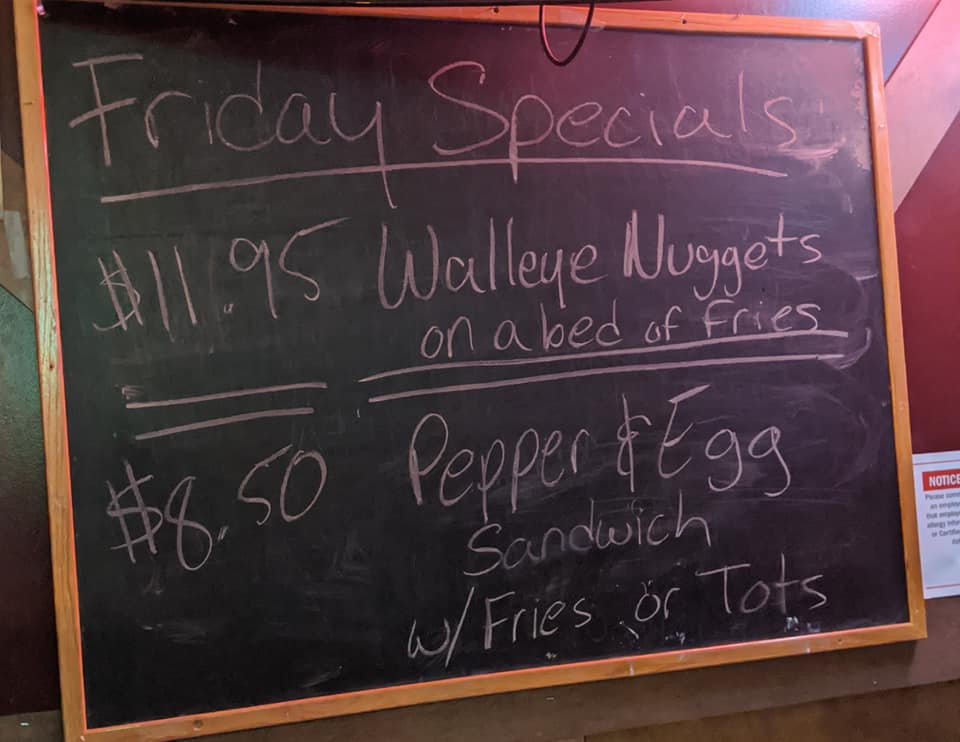 Friday Specials
$11.95 Walleye Nuggets
on a bed of Fries
$8.50 Pepper & Egg
Sandwich
w/ Fries or Tots
NOTICE
Please
an
that
allergy
or